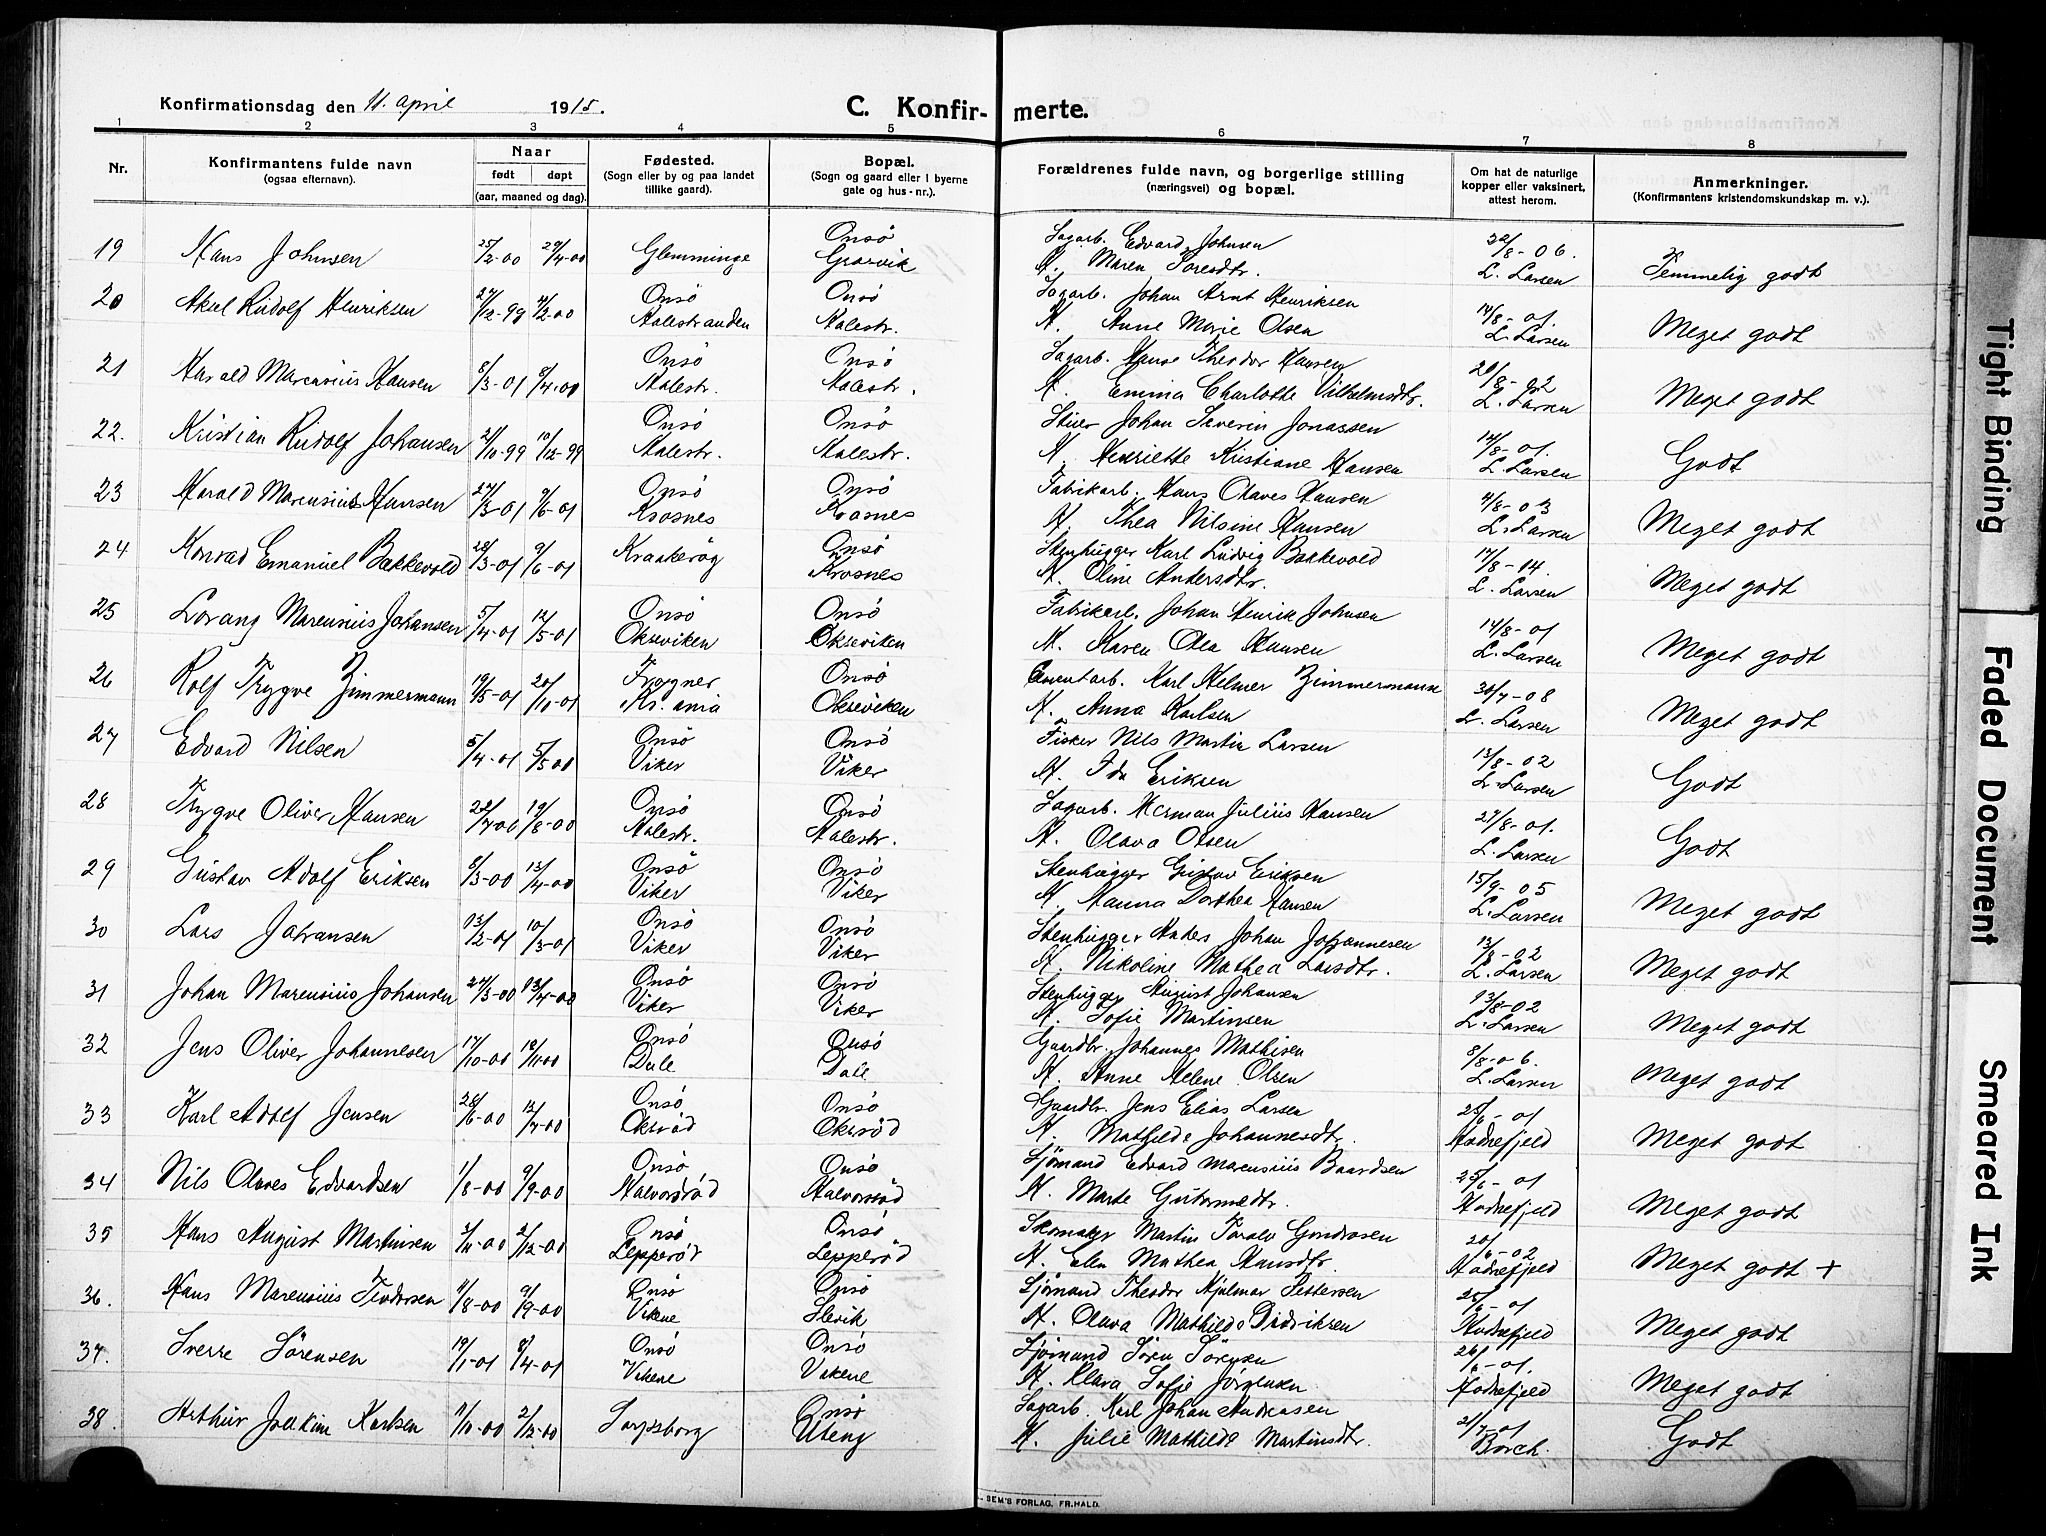 Konfirmationsdag den 11. april 1915. C. Konfir- merte.
1 2 3 4 5 6 7 8
Nr. Konfirmantens fulde navn (ogsaa efternavn). Naar født døpt (aar, maaned og dag). Fødested. (Sogn eller by og paa landet tillike gaard). Bopæl. (Sogn og gaard eller i byerne gate og hus-nr.). Forældrenes fulde navn, og borgerlige stilling (næringsvei) og bopæl. Om hat de naturlige kopper eller vaksinert, attest herom. Anmerkninger. (Konfirmantens kristendomskundskap m. v.).
Onsö Sagarb. Edvard Johnsen 22/8-06.
19 Hans Johnsen 25/2-00 29/4-00 Glemminge H. Maren L. Larsen Temmelig godt
20 Aksel Rudolf Henriksen 27/12-99 4/2-00 Onsö Onsö Sagarb. Johan Arnt Henriksen 14/8-01.
Aalestranden Aalestr. H. Anne Marie Olsen L. Larsen Meget godt
21 Harald Marensius Hansen 8/3-01 8/4-00 Onsö Onsö Sagarb. Hans Theodor Hansen
Aalestr. Aalestr. H. Emma Charlotte Vilhelmsdtr. L. Larsen Meget godt
22. Kristian Rudolf Johansen 21/10-99 10/12-99 Onsö Onsö Stuer Johan Severin Jonassen 14/8-01.
Aalestr. Aalestr. H. Henriette Kristiane Hansen L. Larsen Godt
23 Harald Marensius Hansen 27/3-01 9/6-01 Onsö Onsö Fabrikarb. Hans Olaves Hansen 4/8-03
Krosnes Krosnes H. Thea Nilsine Hansen L. Larsen Meget godt
24 Konrad Emanuel Bakkevold 28/3-01 9/6-01 Kraakeröy Onsö Stenhugger Karl Ludvig Bakkevold 17/8-14.
Krosnes H. Oline Andersdtr. L. Larsen Meget godt
25 Lorang Marensius Johansen 5/4-01 12/5-01 Onsö Onsö Fabrikarb. Johan Henrik Johnsen 14/8-01
Okseviken Okseviken H. Karen Olea Hansen L. Larsen Meget godt
26 Rolf Trygve Zimmermann 19/5-01 20/10-01 Frogner Onsö Cementarb. Karl Helmer Zimmermann 30/7-08
Kr.ania Okseviken H. Anna Karlsen L. Larsen Meget godt
27 Edvard Nilsen 5/4-01 5/5 00 Onsö Onsö Fisker Nils Martin Larsen 13/8-02
Viker Viker H. Ida Eriksen L. Larsen Godt
28 Trygve Oliver Hansen 19/8-00 Onsö Onsö Sagarb. Herman Julius Hansen 27/8-01.
Aalestr. Aalestr. H. Olava Olsen L. Larsen Godt
29 Gustav Adolf Eriksen 8/3-00 13/4-00 Onsö Onsö Stenhugger Gustav Eriksen 15/9-05
Viker Viker H. Hanna Dorthea Hansen L. Larsen Meget godt
30 Lars Johansen 13/2-01 10/3-01 Onsö Onsö Stenhugger Anders Johan Johannesen 13/8-02
Viker Viker H. Nikoline Mathea Larsdtr. L. Larsen Meget godt
31 Johan Marensius Johansen 24/3-00 Onsö Onsö Stenhugger August Johansen 13/8-02
Viker Viker H. Sofie Martinsen L. Larsen Meget godt
32 Jens Oliver Johannesen 17/10-00 18/11-00 Onsö Onsö Gaardbr. Johannes Mathisen 8/8-06.
Dale Dale H. Anne Helene Olsen L. Larsen Meget godt
33 Karl Adolf Jensen 28/6-00 Onsö Onsö Gaardbr. Jens Elias Larsen 25/6-01
Oksröd Oksröd H. Mathilde Johannesdtr. Hadnefjeld Meget godt
34 Nils Olaves Edvardsen 1/8-00 9/9-00 Onsö Onsö Sjömand Edvard Marensius Baardsen 25/6-01
Halvorsröd Halvorsröd H. Marte Gutormsdtr. Hadnefjeld Meget godt
35 Hans August Martinsen 3/11-00 2/12-00 Onsö Onsö Skomaker Martin Toralv Gundrosen 20/6-02
Lepperöd Lepperöd H. Elen Mathea Hansdtr. Hadnefjeld Meget godt +
36. Hans Marensius Teodorsen 4/8-00 9/9-00 Onsö Onsö Sjömand Theodor Hjelmar Pettersen 25/6-01
Vikene Slevik H. Olava Mathilde Didriksen Hadnefjeld Meget godt
37. Sverre Sörensen 19/1-01 8/4-01 Onsö Onsö Sjömand Sören Sörensen 26/6-01.
Vikene Vikene H. Klara Sofie Jörgensen Hadnefjeld Meget godt
38. Arthur Joakim Karlsen 1/10-00 2/12-00 Sarpsborg Onsö Sagarb. Karl Johan Andreasen 21/7-01
Uteng H. Julie Mathilde Martinsdtr. Borch. Godt
SEM'S FORLAG, FR.HALD.
Tight Binding
Faded Document
Smeared Ink